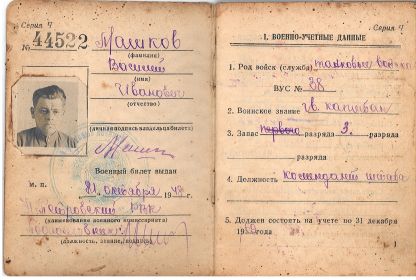 Серия Ч
№ 44522
Машков
(фамилия)
Василий
(имя)
Иванович
(отчество)
(личная подпись владельца билета)
Военный билет выдан
м. п.
21 октября 19
(наименование военного комиссариата)
(должность, звание, подпись)
Серия Ч
I. ВОЕННО-УЧЕТНЫЕ ДАННЫЕ
1. Род войск (служба) танковые войска
ВУС № 38
2. Воинское звание гв. капитан
3. Запас первого разряда 3. разряда
разряда
4. Должность комендант штаба
5. Должен состоять на учете по 31 декабря
19
1